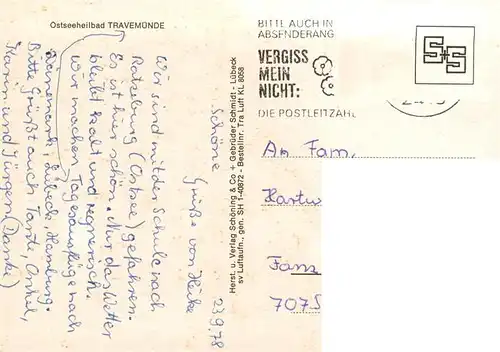 Ostseeheilbad TRAVEMÜNDE
Wir sind mit der Schule nach
Ratzeburg (Ostsee) gefahren.
Es ist hier schön. Nur das Wetter
bleibt kalt und regnerisch.
Wir machen Tagesausflüge nach
Dänemark, Lübeck, Hamburg.
Bitte Grüßt auch Tante, Onkel,
Karin und Jürgen (Danke)
Schöne
Grüße von Heike
23.9.78
Herst. u. Verlag Schöning & Co + Gebrüder Schmidt - Lübeck
sv Luftaufn., gen. SH 1-40872 - Bestellnr. Tra Luft KL 8068
BITTE AUCH IN
ABSENDERANG
VERGISS
MEIN
NICHT:
DIE POSTLEITZAHL
S+S
An Fam.
Hartw
Fam
7075